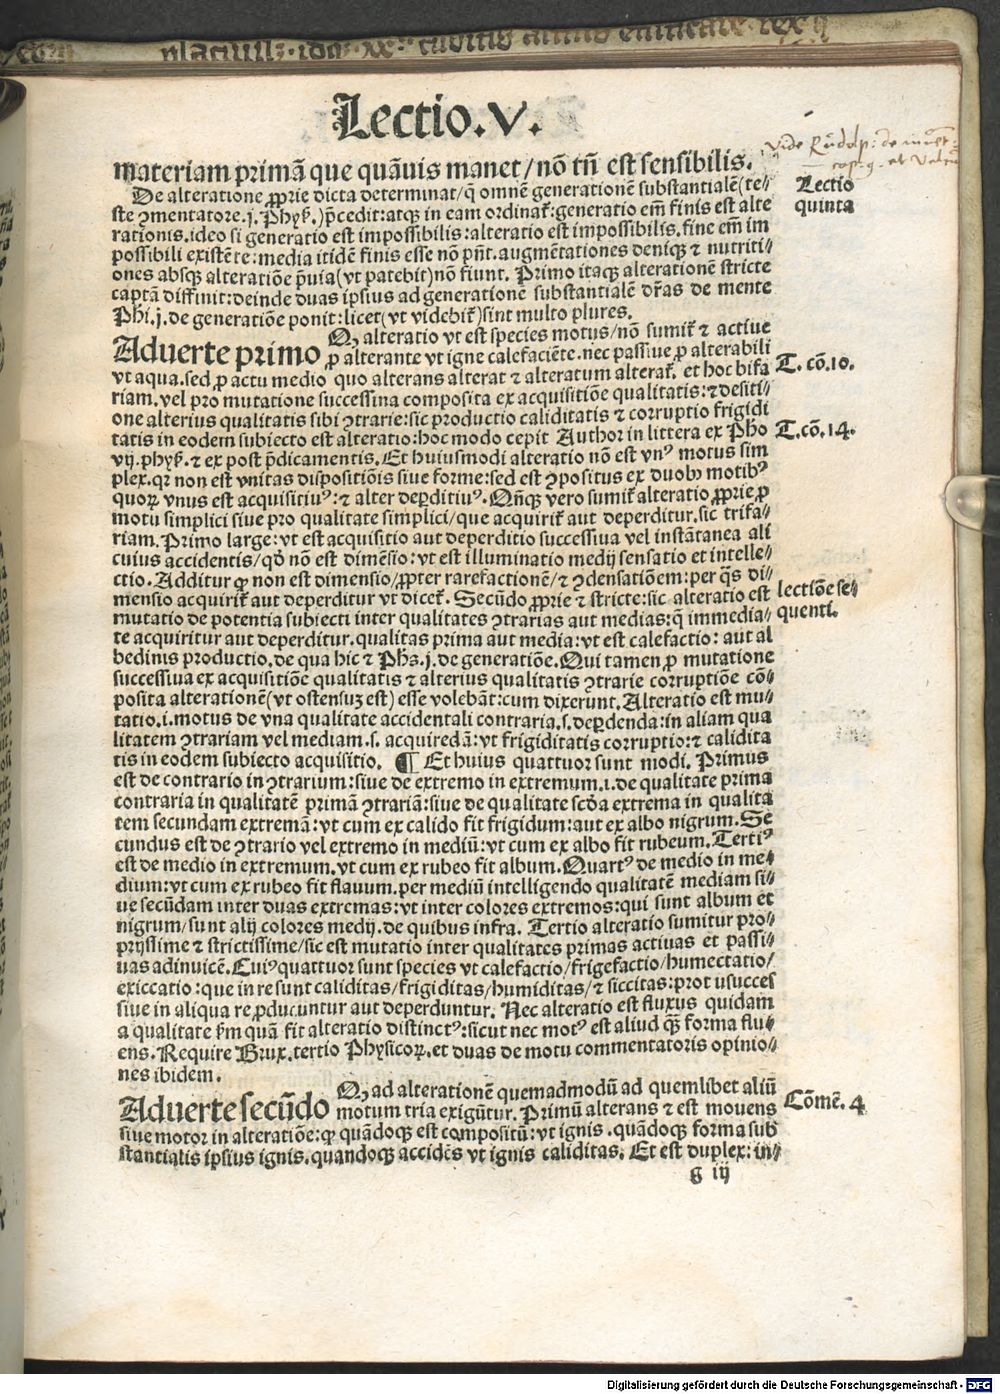 Lectio.V.
materiam primā que quāuis manet/nō tñ est sensibilis.
De alteratione ꝓprie dicta determinat/qꝫ omnē generationē substantialē(te⸗
ste ꝯmentatore.j.Phyẜ.)p̄cedit:atqꝫ in eam ordinat̃:generatio em̄ finis est alte
rationis.ideo si generatio est impossibilis:alteratio est impossibilis.fine em̄ im
possibili existēte:media itidē finis esse nō pn̄t.augmētationes deniqꝫ ⁊ nutriti⸗
ones absqꝫ alteratiōe p̄uia(vt patebit)nō fiunt. Primo itaqꝫ alterationē stricte
captā diffinit:deinde duas ipsius ad generationē substantialē dr̄as de mente
Phi.j.de generatiōe ponit:licet(vt videbit̃)sint multo plures.
Aduerte primo
Qꝫ alteratio vt est species motus/nō sumit̃ ⁊ actiue
ꝓ alterante vt igne calefaciēte.nec passiue ꝓ alterabili
vt aqua.sed ꝓ actu medio quo alterans alterat ⁊ alteratum alterat̃. et hoc bifa
riam.vel pro mutatione successiua composita ex acquisitiōe qualitatis:⁊ desiti⸗
one alterius qualitatis sibi ꝯtrarie:sic productio caliditatis ⁊ corruptio frigidi
tatis in eodem subiecto est alteratio:hoc modo cepit Author in littera ex Pho
vij.phyẜ.⁊ ex post p̄dicamentis.Et huiusmodi alteratio nō est vnꝰ motus sim
plex.qꝛ non est vnitas dispositiōis siue forme:sed est ꝯpositus ex duobꝫ motibꝰ
quoꝝ vnus est acquisitiuꝰ:⁊ alter deperditiuꝰ.Qn̄qꝫ vero sumit̃ alteratio ꝓprie ꝓ
motu simplici siue pro qualitate simplici/que acquirit̃ aut deperditur.sic trifa⸗
riam.Primo large:vt est acquisitio aut deperditio successiua vel instātanea ali
cuius accidentis/qđ nō est dimēsio:vt est illuminatio medij sensatio et intelle⸗
ctio.Additur qꝫ non est dimensio/ꝓpter rarefactionē/⁊ ꝯdensatiōem:per q̄s di⸗
mensio acquirit̃ aut deperditur vt dicet̃. Secūdo ꝓprie ⁊ stricte:sic alteratio est
mutatio de potentia subiecti inter qualitates ꝯtrarias aut medias:q̄ immedia⸗
te acquiritur aut deperditur.qualitas prima aut media:vt est calefactio: aut al
bedinis productio.de qua hic ⁊ Phꝫ.j.de generatiōe.Qui tamen ꝓ mutatione
successiua ex acquisitiōe qualitatis ⁊ alterius qualitatis ꝯtrarie corruptiōe cō⸗
posita alterationē(vt ostensuꝫ est) esse volebāt:cum dixerunt.Alteratio est mu⸗
tatio.i.motus de vna qualitate accidentali contraria.s.deperdenda:in aliam qua
litatem ꝯtrariam vel mediam.s. acquiredā:vt frigiditatis corruptio:⁊ calidita
tis in eodem subiecto acquisitio. ¶ Et huius quattuor sunt modi. Primus
est de contrario in ꝯtrarium:siue de extremo in extremum.i.de qualitate prima
contraria in qualitatē primā ꝯtrariā:siue de qualitate scđa extrema in qualita
tem secundam extremā:vt cum ex calido fit frigidum:aut ex albo nigrum.Se
cundus est de ꝯtrario vel extremo in mediū:vt cum ex albo fit rubeum.Tertiꝰ
est de medio in extremum.vt cum ex rubeo fit album.Quartꝰ de medio in me⸗
dium:vt cum ex rubeo fit flauum.per mediū intelligendo qualitatē mediam si⸗
ue secūdam inter duas extremas:vt inter colores extremos:qui sunt album et
nigrum/sunt alij colores medij.de quibus infra. Tertio alteratio sumitur pro⸗
prijssime ⁊ strictissime/sic est mutatio inter qualitates primas actiuas et passi⸗
uas adinuicē.Cuiꝰ quattuor sunt species vt calefactio/frigefactio/humectatio/
exiccatio:que in re sunt caliditas/frigiditas/humiditas/⁊ siccitas:prot vsucces
siue in aliqua re ꝓducuntur aut deperduntur. Nec alteratio est fluxus quidam
a qualitate ẜm quā fit alteratio distinctꝰ:sicut nec motꝰ est aliud qꝫ̄ forma flu⸗
ens.Require Brux.tertio Physicoꝝ.et duas de motu commentatoris opinio⸗
nes ibidem.
Aduerte secūdo
Qꝫ ad alterationē quemadmodū ad quemlibet aliū
motum tria exigūtur.Primū alterans ⁊ est mouens
siue motor in alteratiōe:qꝫ quādoqꝫ est compositū:vt ignis.quādoqꝫ forma sub
stantialis ipsius ignis.quandoqꝫ accidēs vt ignis caliditas. Et est duplex:in⸗
g iij
Lectio
quinta
T. cō.10.
T.cō.14.
lectiōe se⸗
quenti.
Cōmē. 4
Digitalisierung gefördert durch die Deutsche Forschungsgemeinschaft - DFG